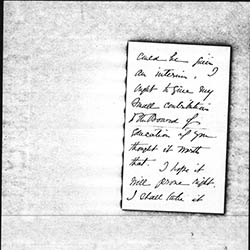 could be given
an interim. I
ought to give my
small contribution
to the Board of
Education if you
thought it worth
that. I hope it
will prove right.
I shall take it